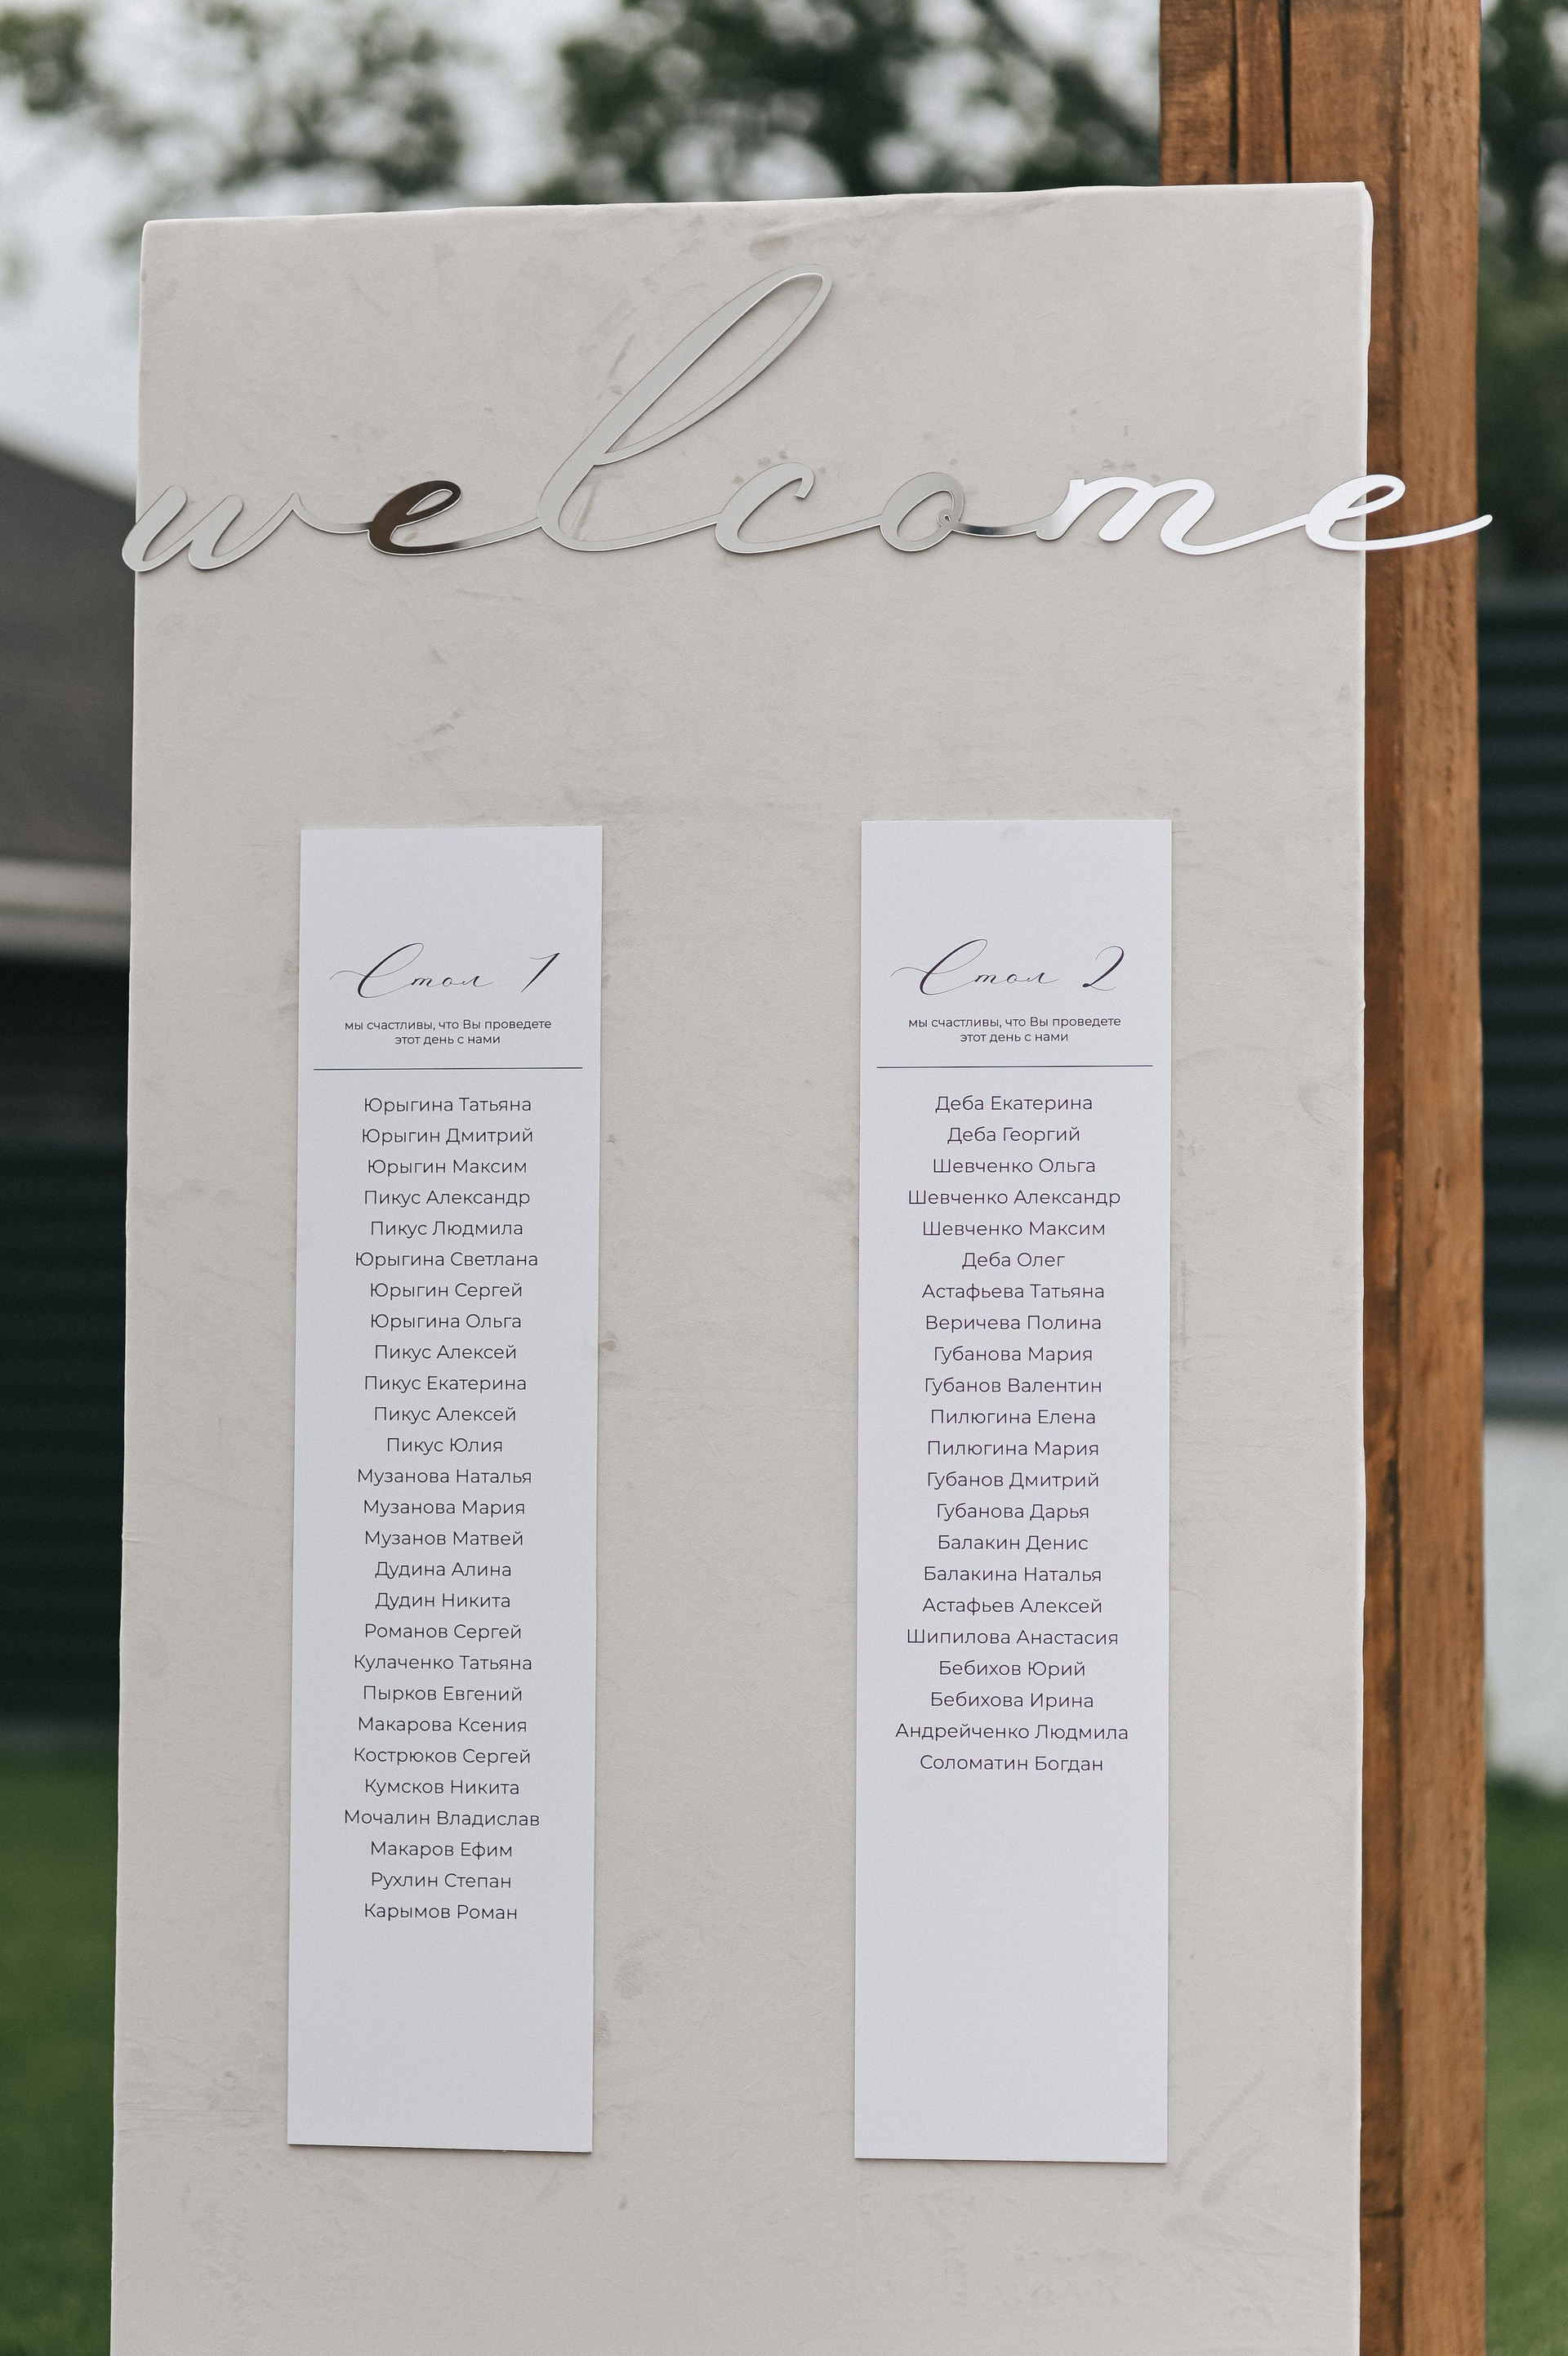 welcome
Стол 1
мы счастливы, что Вы проведете
этот день с нами
Юрыгина Татьяна
Юрыгин Дмитрий
Юрыгин Максим
Пикус Александр
Пикус Людмила
Юрыгина Светлана
Юрыгин Сергей
Юрыгина Ольга
Пикус Алексей
Пикус Екатерина
Пикус Алексей
Пикус Юлия
Музанова Наталья
Музанова Мария
Музанов Матвей
Дудина Алина
Дудин Никита
Романов Сергей
Кулаченко Татьяна
Пырков Евгений
Макарова Ксения
Кострюков Сергей
Кумсков Никита
Мочалин Владислав
Макаров Ефим
Рухлин Степан
Карымов Роман
Стол 2
мы счастливы, что Вы проведете
этот день с нами
Деба Екатерина
Деба Георгий
Шевченко Ольга
Шевченко Александр
Шевченко Максим
Деба Олег
Астафьева Татьяна
Веричева Полина
Губанова Мария
Губанов Валентин
Пилюгина Елена
Пилюгина Мария
Губанов Дмитрий
Губанова Дарья
Балакин Денис
Балакина Наталья
Астафьев Алексей
Шипилова Анастасия
Бебихов Юрий
Бебихова Ирина
Андрейченко Людмила
Соломатин Богдан